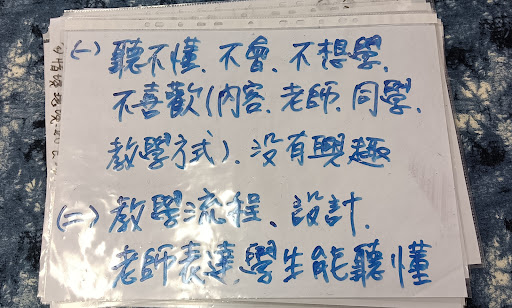 (一) 聽不懂、不會、不想學、
不喜歡(內容、老師、同學、
教學方式)、沒有興趣
(二) 教學流程、設計、
老師表達,學生能聽懂